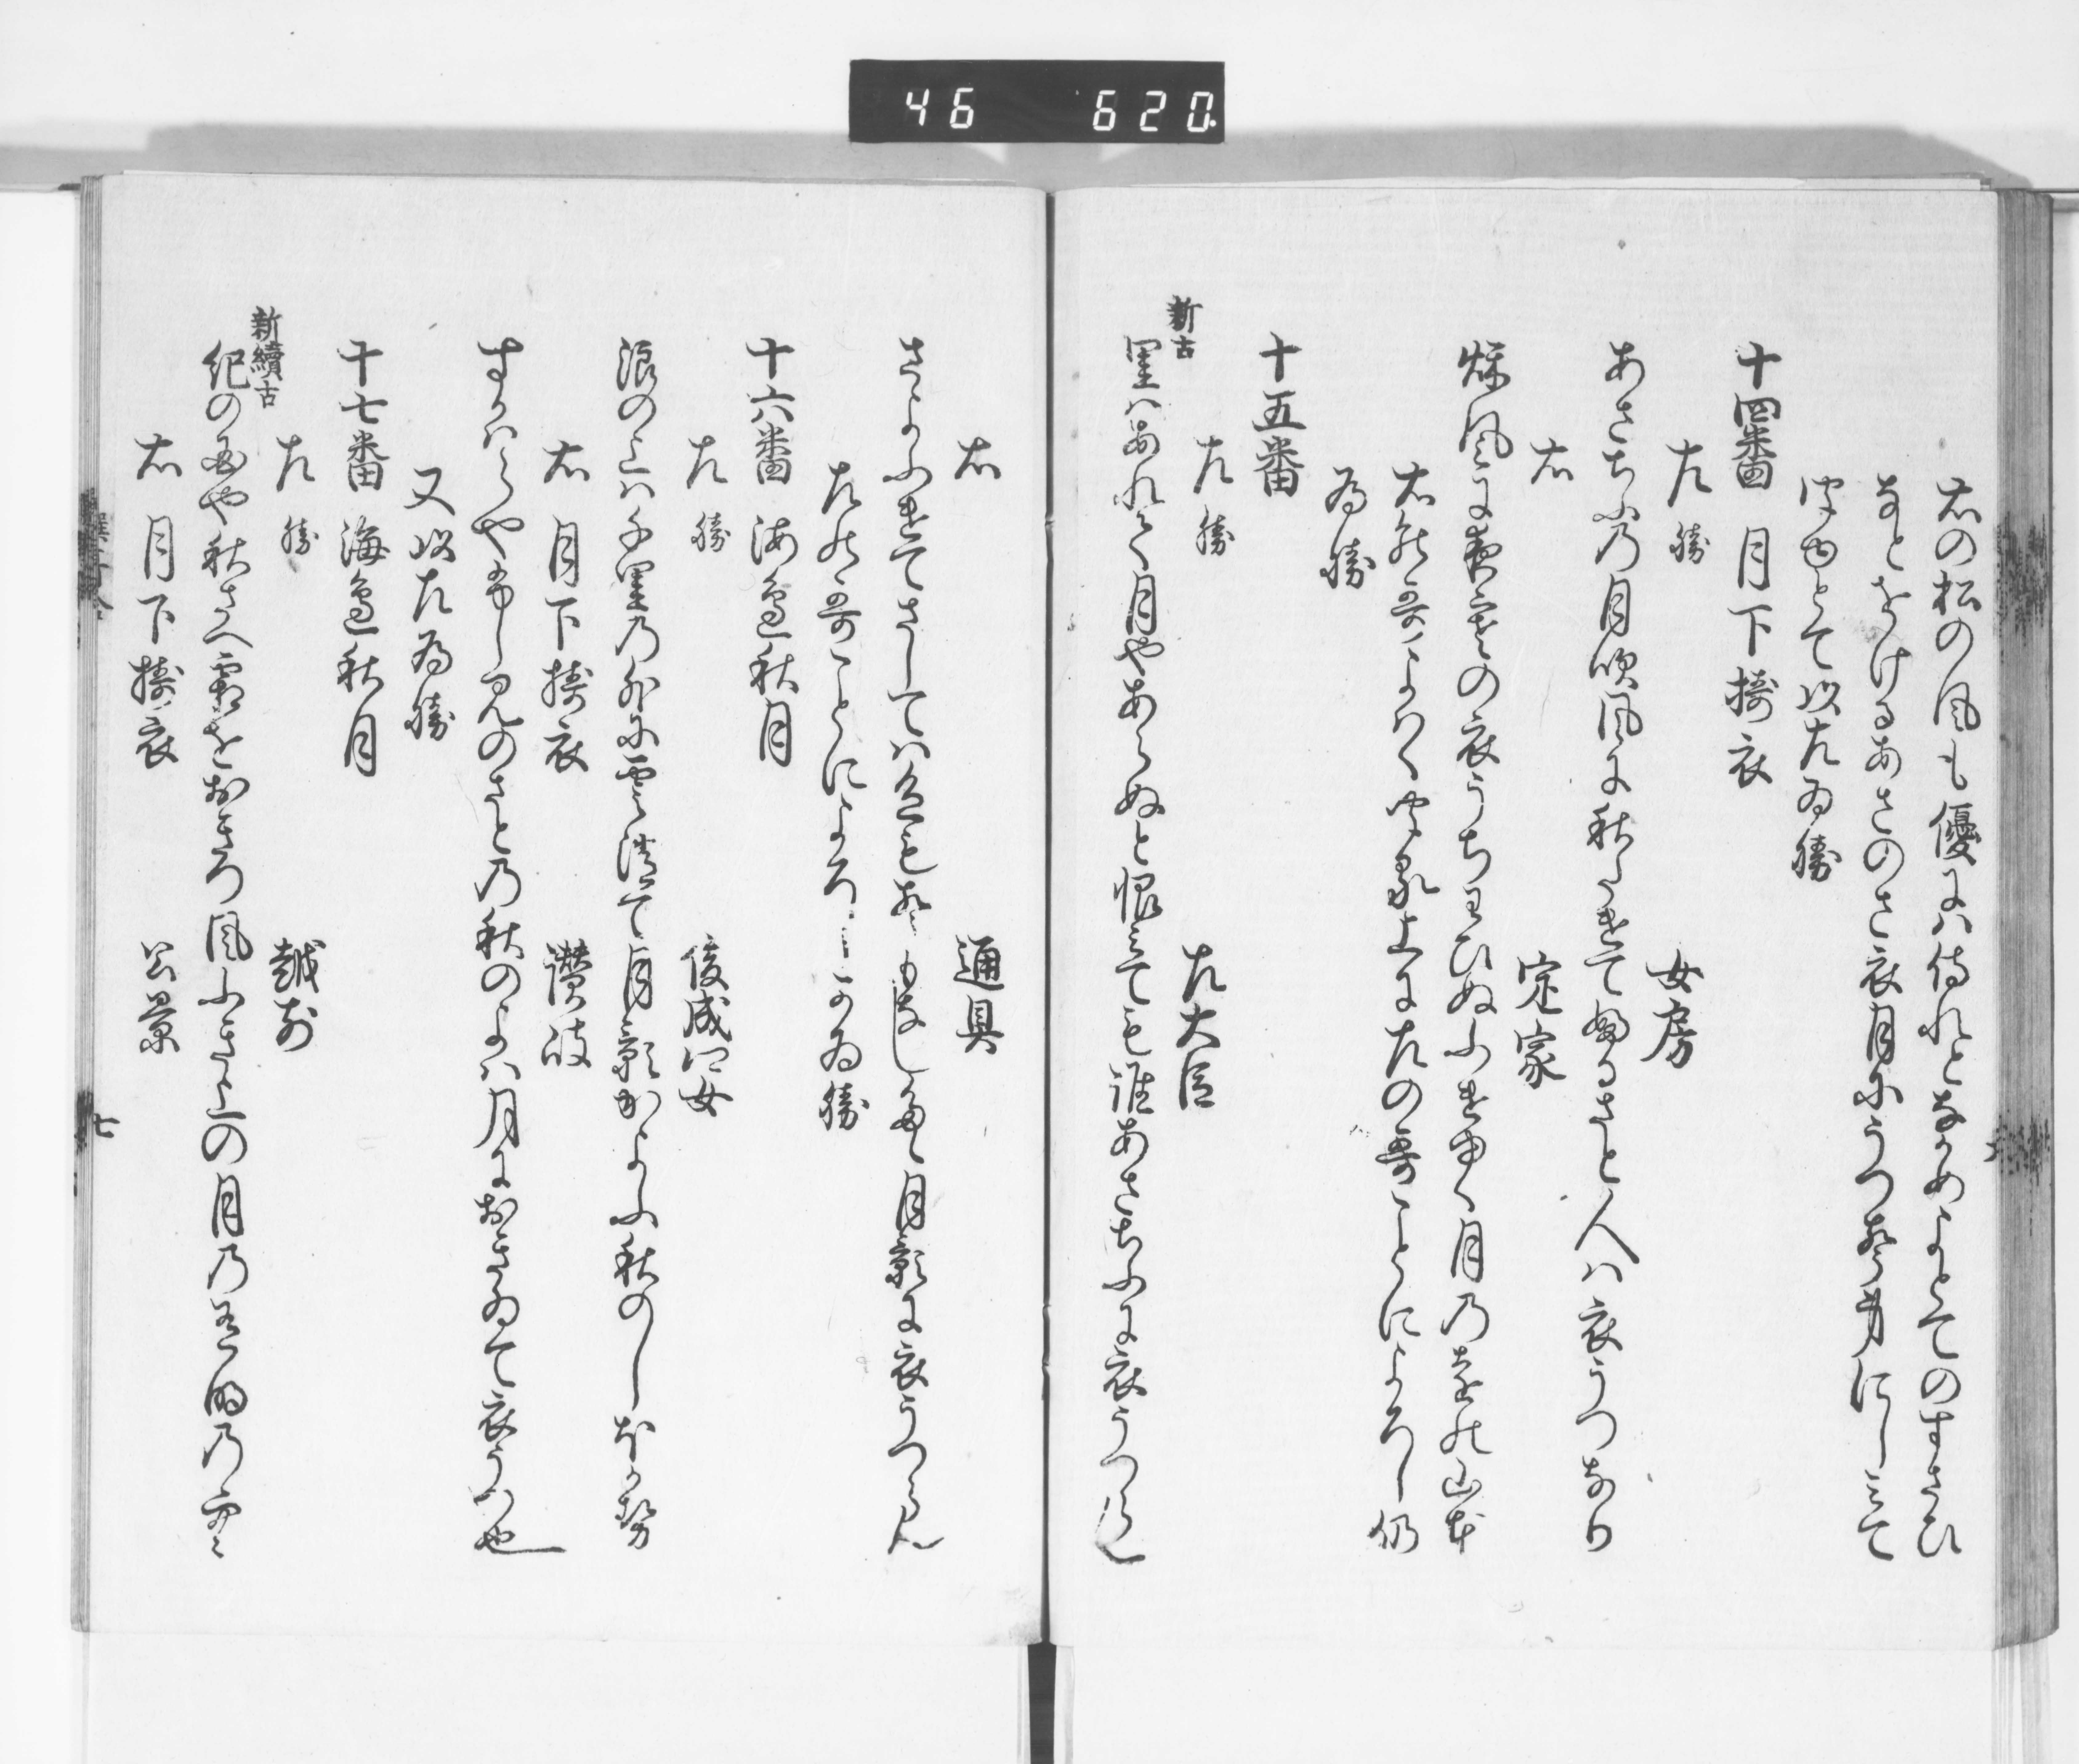 46 620
右の松の風も優には侍れとなかめよとてのすさひ
なとをけるあさのさ衣月にうつ声身にしみて
以左為勝
十四番 月下擣衣
左 勝 女房
あさちふの月吹風に秋たけてふるさと人は衣うつなり
右 定家
秋風に夜さむの衣うちわひぬふけゆく月のをちの山本
右歌よろしく聞え上に左の哥ことによろし仍
為勝
十五番
左 勝 左大臣
新古
里はあれて月やあらぬと恨みても誰あさちふに衣うつらむ
右 通具
さよふけてさしては色も声もなし月影に衣うつらん
左の哥ことによろし可為勝
十六番 海邊秋月
左 勝 俊成卿女
浪の上は千里の外に雲消て月影かよふ秋のしほかせ
右 月下擣衣 讃岐
すかはらやふしみのさとの秋のよは月におきゐて衣うつ也
又以左為勝
十七番 海邊秋月
左 勝 越前
新續古
紀の国や秋さへ霜をおきつ風ふきあけの月の有明の空
右 月下擣衣 公景
七